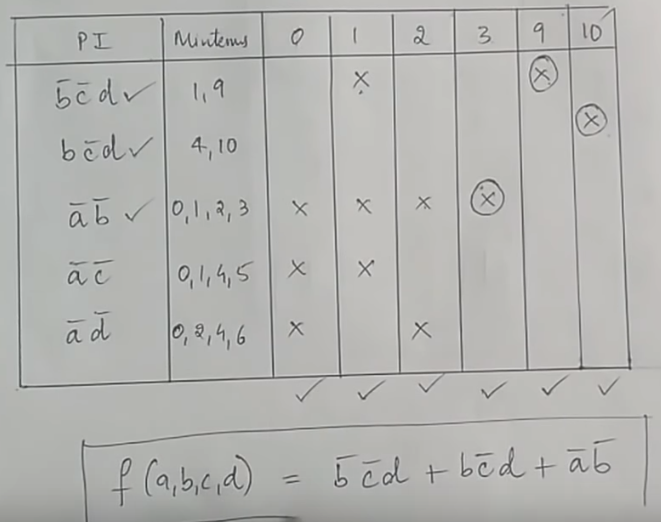 PI Minterms 0 1 2 3 9 10
b̅ c̅ d ✓ 1, 9 × ⊗
b c̅ d ✓ 4, 10 ⊗
a̅ b̅ ✓ 0, 1, 2, 3 × × × ⊗
a̅ c̅ 0, 1, 4, 5 × ×
a̅ d̅ 0, 2, 4, 6 × ×
✓ ✓ ✓ ✓ ✓ ✓
f (a, b, c, d) = b̅ c̅ d + b c̅ d + a̅ b̅